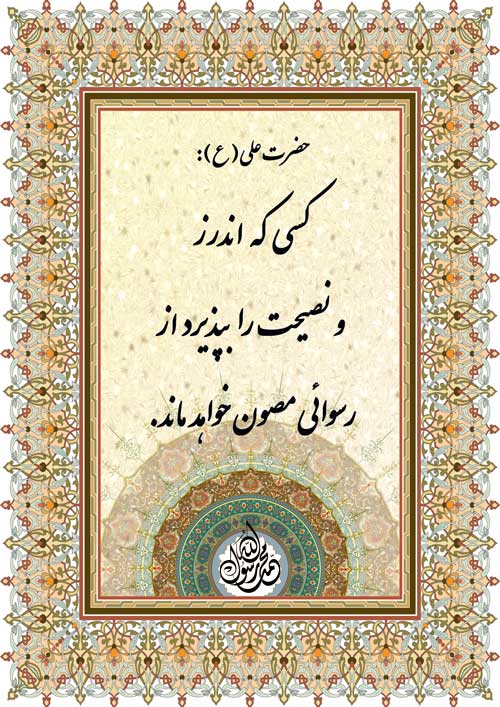 حضرت علی (ع):
کسی که اندرز
و نصیحت را بپذیرد از
رسوائی مصون خواهد ماند.
محمد رسول الله